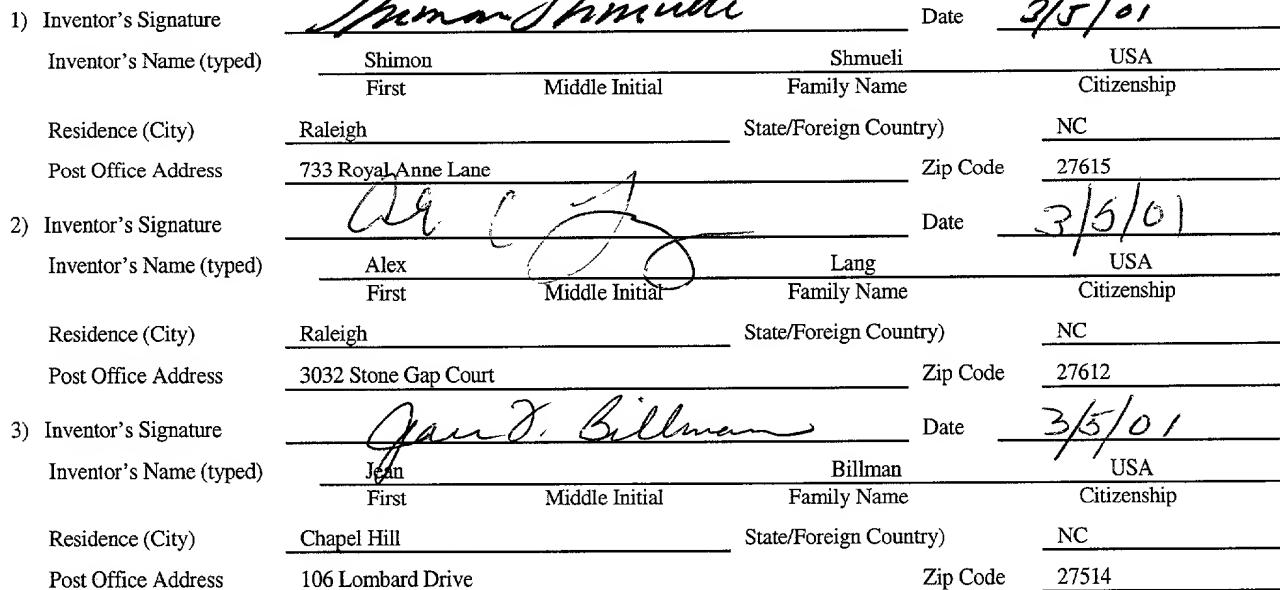 1) Inventor's Signature Shimon Shmueli Date 3/5/01
Inventor's Name (typed) Shimon Shmueli USA
First Middle Initial Family Name Citizenship
Residence (City) Raleigh State/Foreign Country) NC
Post Office Address 733 Royal Anne Lane Zip Code 27615
2) Inventor's Signature Date 3/5/01
Inventor's Name (typed) Alex Lang USA
First Middle Initial Family Name Citizenship
Residence (City) Raleigh State/Foreign Country) NC
Post Office Address 3032 Stone Gap Court Zip Code 27612
3) Inventor's Signature Jean F. Billman Date 3/5/01
Inventor's Name (typed) Jean Billman USA
First Middle Initial Family Name Citizenship
Residence (City) Chapel Hill State/Foreign Country) NC
Post Office Address 106 Lombard Drive Zip Code 27514